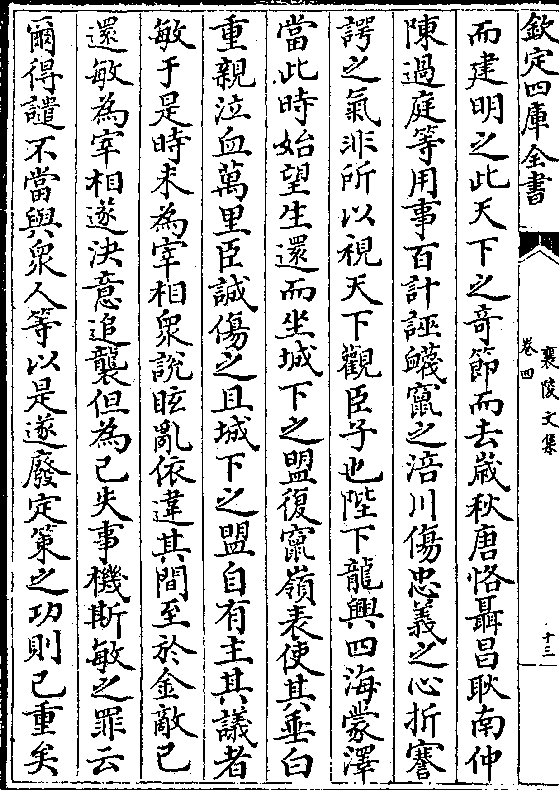 欽定四庫全書
襄陵文集
卷四
十三
而建明之此天下之奇節而去嵗秋唐恪聶昌耿南仲
陳過庭等用事百計誣衊竄之涪川傷忠義之心折謇
諤之氣非所以視天下觀臣子也陛下龍興四海蒙澤
當此時始望生還而坐城下之盟復竄嶺表使其垂白
重親泣血萬里臣誠傷之且城下之盟自有主其議者
敏于是時未為宰相衆說眩亂依違其間至於金敵已
還敏為宰相遂決意追襲但為已失事機斯敏之罪云
爾得譴不當與衆人等以是遂廢定策之功則已重矣